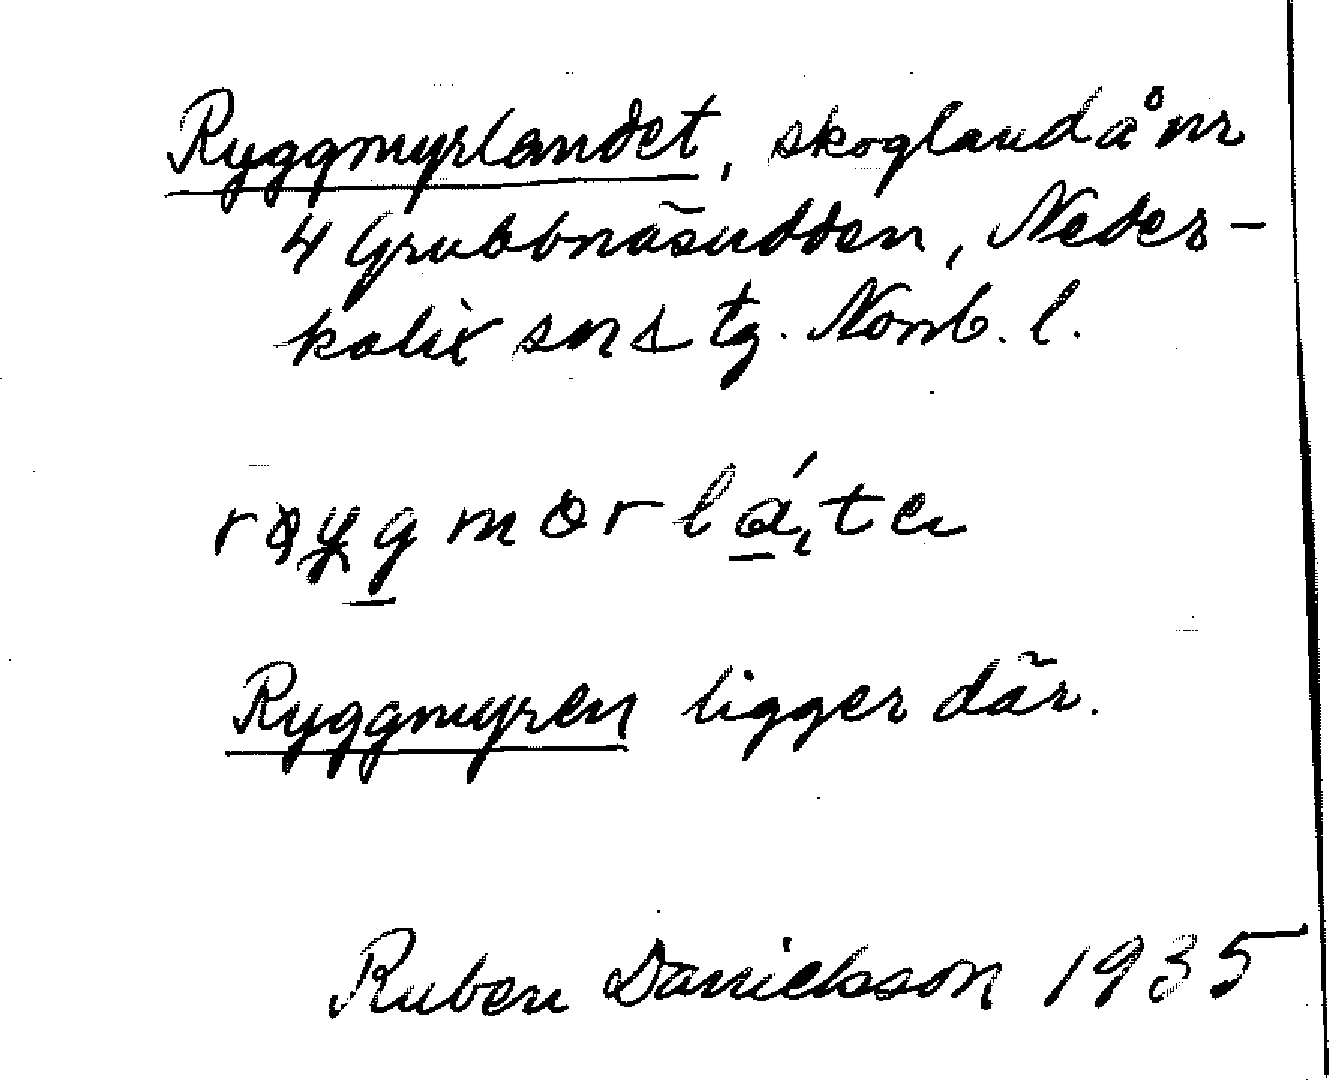 Ryggmyrlandet, skogland å nr
4 Grubbnäsudden, Neder-
kalix sn o tg. Norrb. l.
Ryggmyren ligger där.
Ruben Danielsson 1935